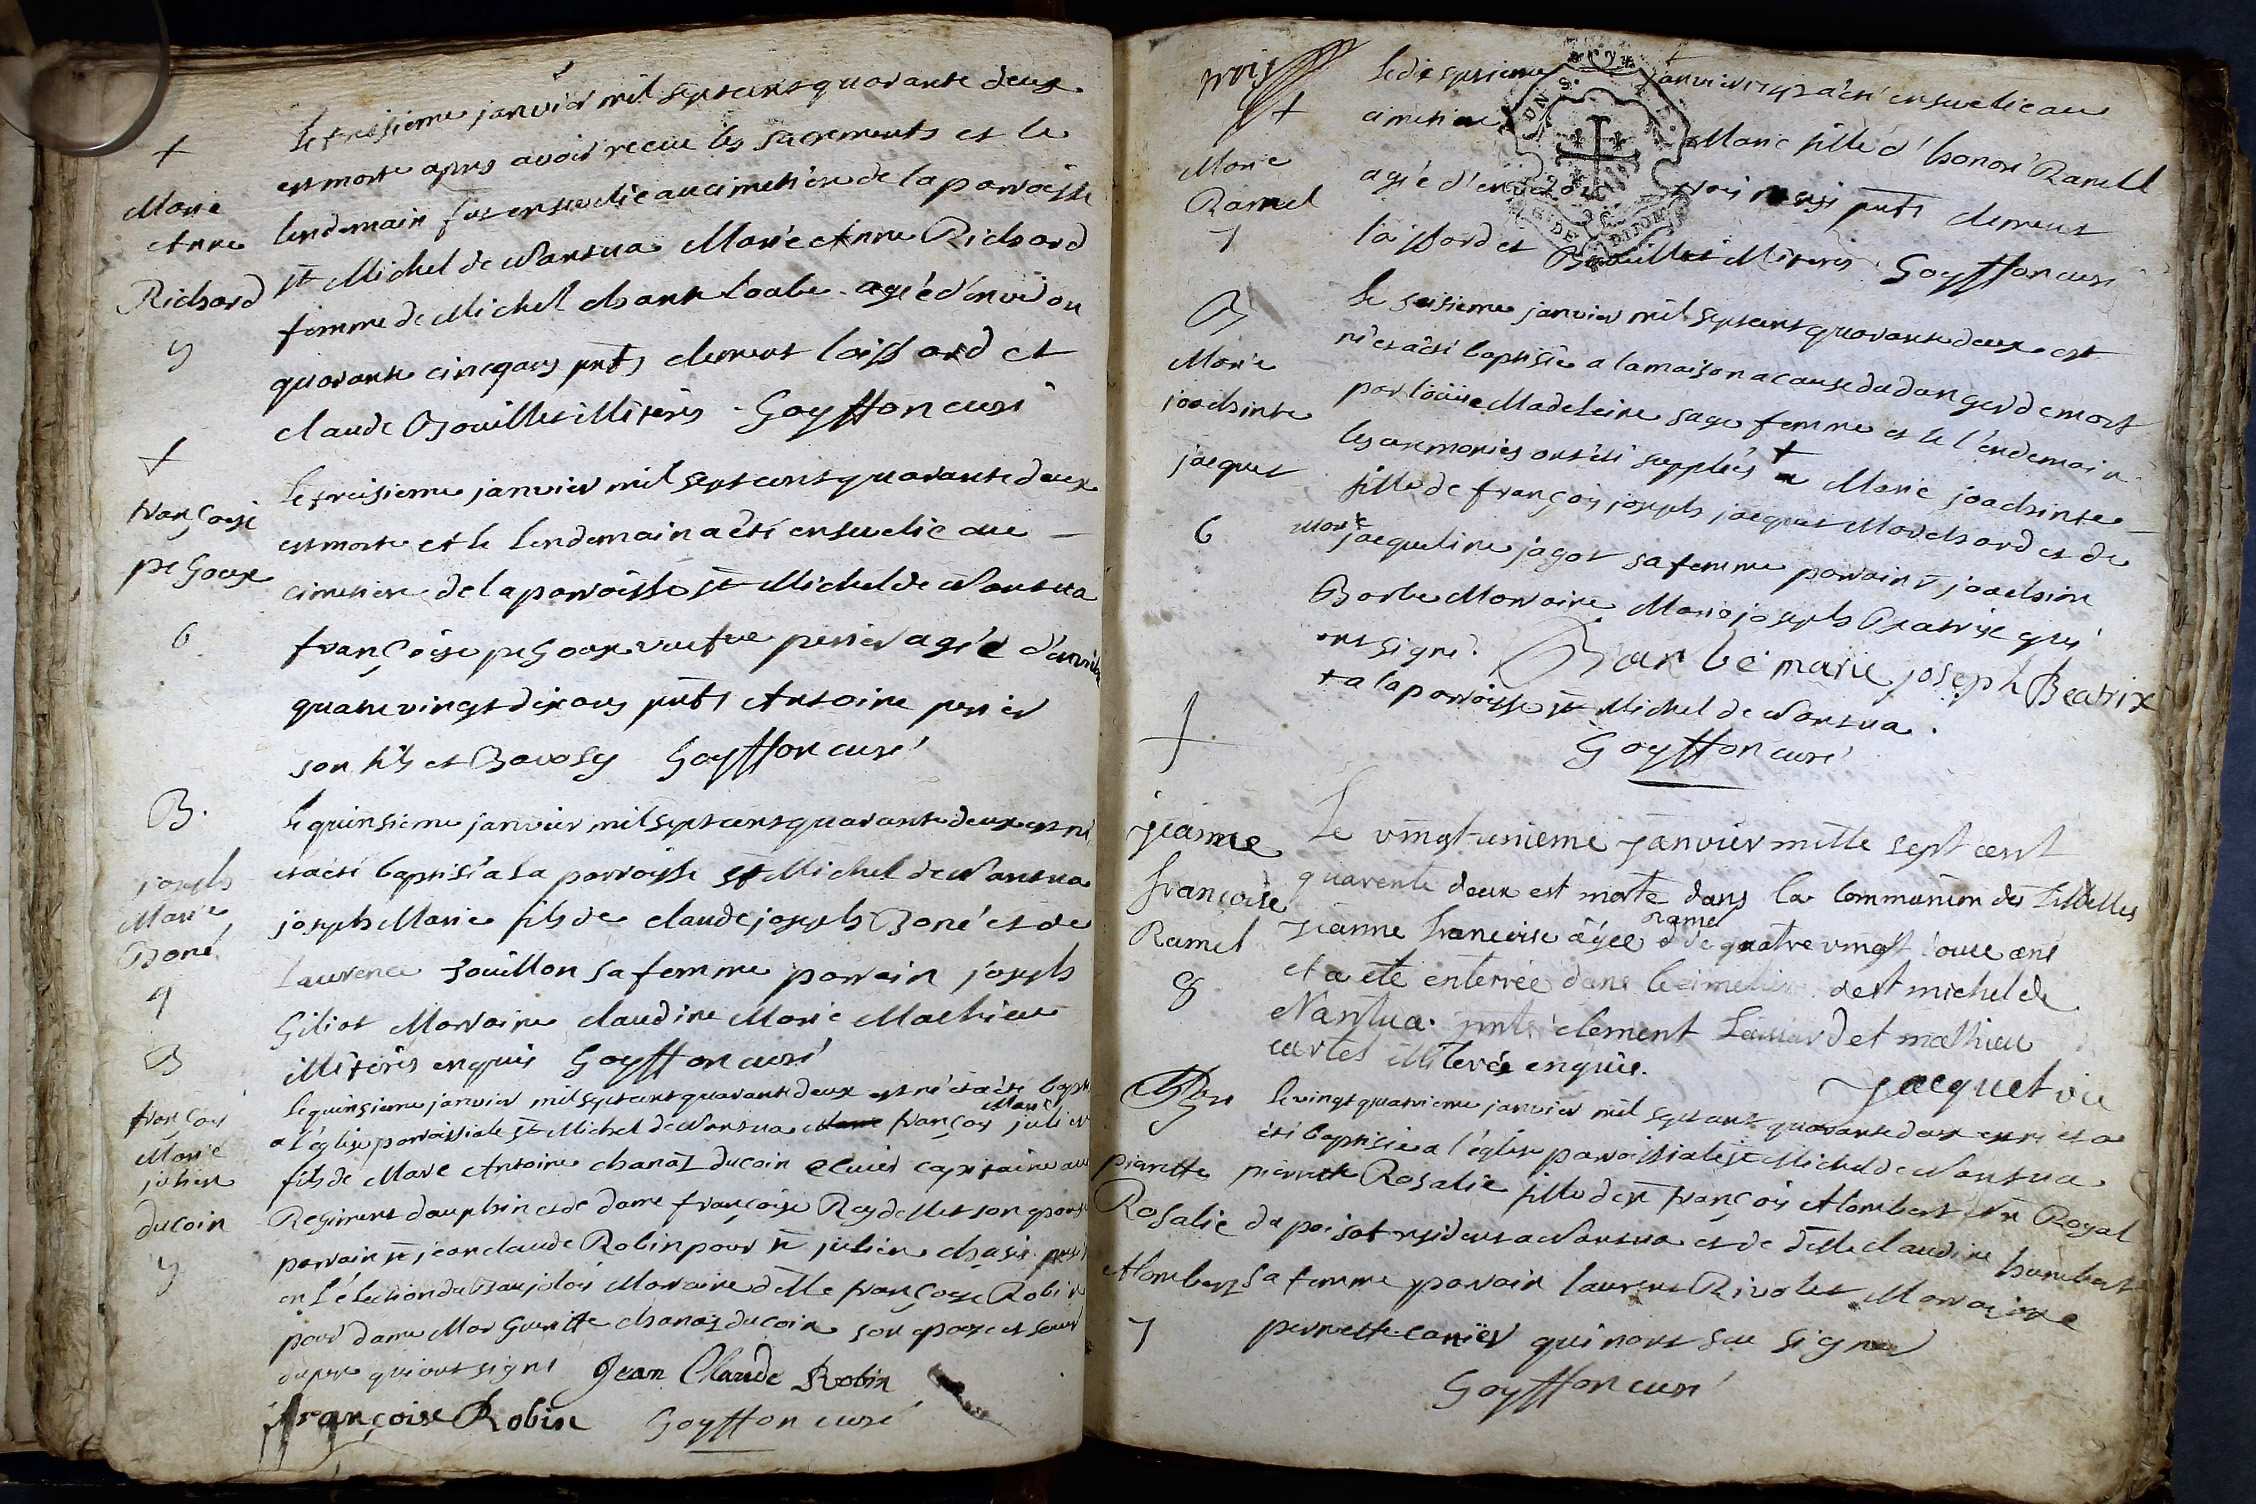 +
Marie
Anne
Richard
5
Le treisieme janvier mil sept cent quarante deux
est morte apres avoir receue les sacrements et le
lendemain fut ensevelie au cimetiere de la parroisse
st Michel de Nantua Marie Anne Richard
femme de Michel agée d'environ
quarante cinq ans pnts clement loissard et
claude Bouillet illiterés. Goyffon curé
+
françoise
peGoux
6
le treisieme janvier mil sept cent quarante deux
est morte et le lendemain a été ensevelie au
cimetiere de la parroisse st Michel de Nantua
françoise peGoux veufve perier agée d'environ
quatre vingt dix ans pnts Antoine perier
son fils et Bavosy Goyffon curé
B.
joseph
Marie
Boné
4
le quinsieme janvier mil sept cent quarante deux est né
et a été baptisé a la parroisse st Michel de Nantua
joseph Marie fils de claude joseph Boné et de
Laurence souillon sa femme parrain joseph
Giliot Marraine claudine Marie Mathieu
illiterés enquis Goyffon curé
B
françois
Marie
julien
ducoin
5
le quinsieme janvier mil sept cent quarante deux est né et a été baptisé
a l'église parroissiale st Michel de Nantua françois Marie julien
fils de Marc Antoine chanaz ducoin ecuier capitaine au
Regiment dauphin et de dame françoise Reydellet son epouse
parrain sr jean claude Robin pour sr julien chasi
en l'élection du Baujolois Marraine delle françoise Robin
pour dame Margueritte chanaz ducoin son epouse et soeur
du pere qui ont signé Jean Claude Robin
françoise Robin Goyffon curé
trois
+
Marie
Ramel
7
le dixseptieme janvier 1742 a été ensevelie au
cimetiere Marie fille d'honoré Ramel
agée d'environ trois mois pnts clement
loissard et Bouillet illiterés. Goyffon curé
B
Marie
joachinte
jacquet
6
le seisieme janvier mil sept cent quarante deux est
née et a été baptisée a la maison a cause du danger de mort
par loüise Madeleine sage femme et le l'endemain
les ceremonies ont été supplées + a Marie joachinte
fille de françois joseph jacquet Marchand et de
Marie jacqueline jagot sa femme parrain sr joachim
Barbe Marraine Marie joseph Beatrix qui
ont signé. Barbe marie joseph Beatrix
+ a la parroisse st Michel de Nantua.
Goyffon curé
+
jeanne
francoise
Ramel
8
Le vingt-unieme janvier mille sept cent
quarente deux est morte dans la Communion des fidelles
Jeanne francoise ramel âgée de quatre vingt douze ans
et a été enterrée dans le cimetiere de st michel de
Nantua. pnts clement Laissard et mathieu
cartet illiterés enquis.
Jacquet vic
B
pierrette
Rosalie
Alombert
7
le vingt quatrieme janvier mil sept cent quarante deux est née et a
été baptisée a l'église parroissiale st Michel de Nantua
pierrette Rosalie fille de sr françois Alombert Royal
du poisat resident a Nantua et de delle claudine humbert
sa femme parrain laurent Rivolet Marraine
pernette carrier qui n'ont sçu signer
Goyffon curé